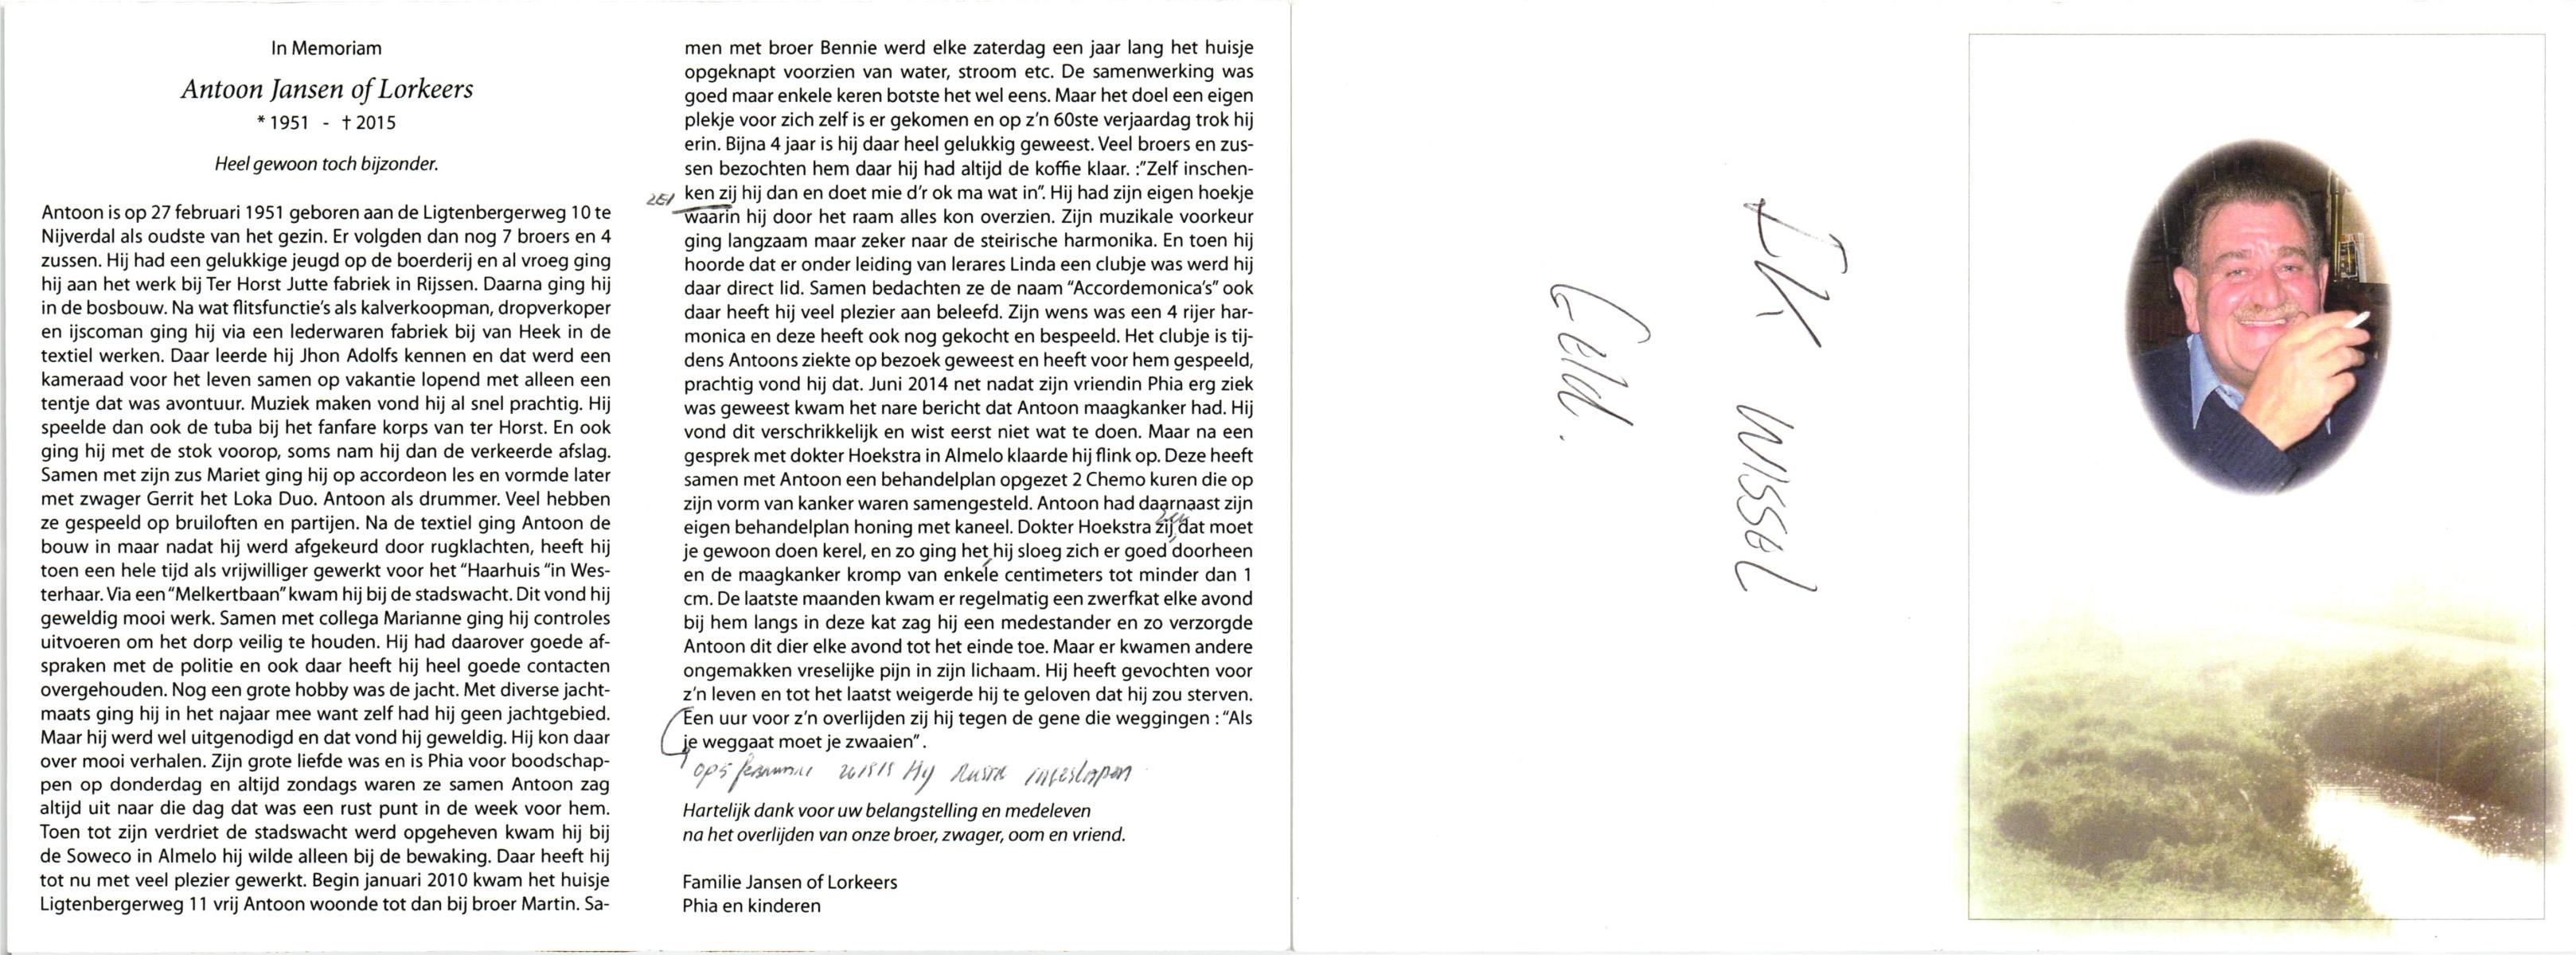 In Memoriam
Antoon Jansen of Lorkeers
* 1951 - † 2015
Heel gewoon toch bijzonder.
Antoon is op 27 februari 1951 geboren aan de Ligtenbergerweg 10 te
Nijverdal als oudste van het gezin. Er volgden dan nog 7 broers en 4
zussen. Hij had een gelukkige jeugd op de boerderij en al vroeg ging
hij aan het werk bij Ter Horst Jutte fabriek in Rijssen. Daarna ging hij
in de bosbouw. Na wat flitsfunctie's als kalverkoopman, dropverkoper
en ijscoman ging hij via een lederwaren fabriek bij van Heek in de
textiel werken. Daar leerde hij Jhon Adolfs kennen en dat werd een
kameraad voor het leven samen op vakantie lopend met alleen een
tentje dat was avontuur. Muziek maken vond hij al snel prachtig. Hij
speelde dan ook de tuba bij het fanfare korps van ter Horst. En ook
ging hij met de stok voorop, soms nam hij dan de verkeerde afslag.
Samen met zijn zus Mariet ging hij op accordeon les en vormde later
met zwager Gerrit het Loka Duo. Antoon als drummer. Veel hebben
ze gespeeld op bruiloften en partijen. Na de textiel ging Antoon de
bouw in maar nadat hij werd afgekeurd door rugklachten, heeft hij
toen een hele tijd als vrijwilliger gewerkt voor het "Haarhuis "in Wes-
terhaar. Via een "Melkertbaan" kwam hij bij de stadswacht. Dit vond hij
geweldig mooi werk. Samen met collega Marianne ging hij controles
uitvoeren om het dorp veilig te houden. Hij had daarover goede af-
spraken met de politie en ook daar heeft hij heel goede contacten
overgehouden. Nog een grote hobby was de jacht. Met diverse jacht-
maats ging hij in het najaar mee want zelf had hij geen jachtgebied.
Maar hij werd wel uitgenodigd en dat vond hij geweldig. Hij kon daar
over mooi verhalen. Zijn grote liefde was en is Phia voor boodschap-
pen op donderdag en altijd zondags waren ze samen Antoon zag
altijd uit naar die dag dat was een rust punt in de week voor hem.
Toen tot zijn verdriet de stadswacht werd opgeheven kwam hij bij
de Soweco in Almelo hij wilde alleen bij de bewaking. Daar heeft hij
tot nu met veel plezier gewerkt. Begin januari 2010 kwam het huisje
Ligtenbergerweg 11 vrij Antoon woonde tot dan bij broer Martin. Sa-
men met broer Bennie werd elke zaterdag een jaar lang het huisje
opgeknapt voorzien van water, stroom etc. De samenwerking was
goed maar enkele keren botste het wel eens. Maar het doel een eigen
plekje voor zich zelf is er gekomen en op z'n 60ste verjaardag trok hij
erin. Bijna 4 jaar is hij daar heel gelukkig geweest. Veel broers en zus-
sen bezochten hem daar hij had altijd de koffie klaar. :"Zelf inschen-
ZEI ken zij hij dan en doet mie d'r ok ma wat in". Hij had zijn eigen hoekje
waarin hij door het raam alles kon overzien. Zijn muzikale voorkeur
ging langzaam maar zeker naar de steirische harmonika. En toen hij
hoorde dat er onder leiding van lerares Linda een clubje was werd hij
daar direct lid. Samen bedachten ze de naam "Accordemonica's" ook
daar heeft hij veel plezier aan beleefd. Zijn wens was een 4 rijer har-
monica en deze heeft ook nog gekocht en bespeeld. Het clubje is tij-
dens Antoons ziekte op bezoek geweest en heeft voor hem gespeeld,
prachtig vond hij dat. Juni 2014 net nadat zijn vriendin Phia erg ziek
was geweest kwam het nare bericht dat Antoon maagkanker had. Hij
vond dit verschrikkelijk en wist eerst niet wat te doen. Maar na een
gesprek met dokter Hoekstra in Almelo klaarde hij flink op. Deze heeft
samen met Antoon een behandelplan opgezet 2 Chemo kuren die op
zijn vorm van kanker waren samengesteld. Antoon had daarnaast zijn
eigen behandelplan honing met kaneel. Dokter Hoekstra zij dat moet
je gewoon doen kerel, en zo ging het hij sloeg zich er goed doorheen
en de maagkanker kromp van enkele centimeters tot minder dan 1
cm. De laatste maanden kwam er regelmatig een zwerfkat elke avond
bij hem langs in deze kat zag hij een medestander en zo verzorgde
Antoon dit dier elke avond tot het einde toe. Maar er kwamen andere
ongemakken vreselijke pijn in zijn lichaam. Hij heeft gevochten voor
z'n leven en tot het laatst weigerde hij te geloven dat hij zou sterven.
Een uur voor z'n overlijden zij hij tegen de gene die weggingen : "Als
je weggaat moet je zwaaien".
op 5 februari is Hij ingeslapen
Hartelijk dank voor uw belangstelling en medeleven
na het overlijden van onze broer, zwager, oom en vriend.
Familie Jansen of Lorkeers
Phia en kinderen
IK WISSEL
Geld.